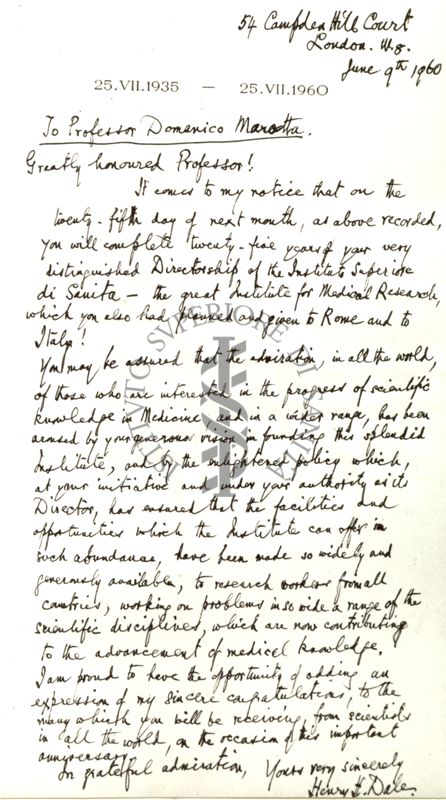 54 Campden Hill Court
London. W.8.
June 9th 1960
25.VII.1935 — 25.VII.1960
To Professor Domenico Marotta.
Greatly honoured Professor!
It comes to my notice that on the
twenty-fifth day of next month, as above recorded,
you will complete twenty-five years of your very
distinguished Directorship of the Instituto Superiore
di Sanita — the great Institute for Medical Research
which you also had planned and given to Rome and to
Italy!
You may be assured that the admiration, in all the world,
of those who are interested in the progress of scientific
knowledge in Medicine and in a wider range, has been
aroused by your generous vision in funding this splendid
Institute, and by the enlightened policy which,
at your initiative and under your authority as its
Director, has ensured that the facilities and
opportunities which the Institute can offer in
such abundance, have been made so widely and
generously available, to research workers from all
countries, working on problems in so wide a range of the
scientific disciplines, which are now contributing
to the advancement of medical knowledge.
I am proud to have the opportunity of adding an
expression of my sincere congratulations, to the
many which you will be receiving, from scientists
in all the world, on the occasion of this important
anniversary.
In grateful admiration, Yours very sincerely
Henry H. Dale.
ISTITVTO SVPERIORE DI SANITA